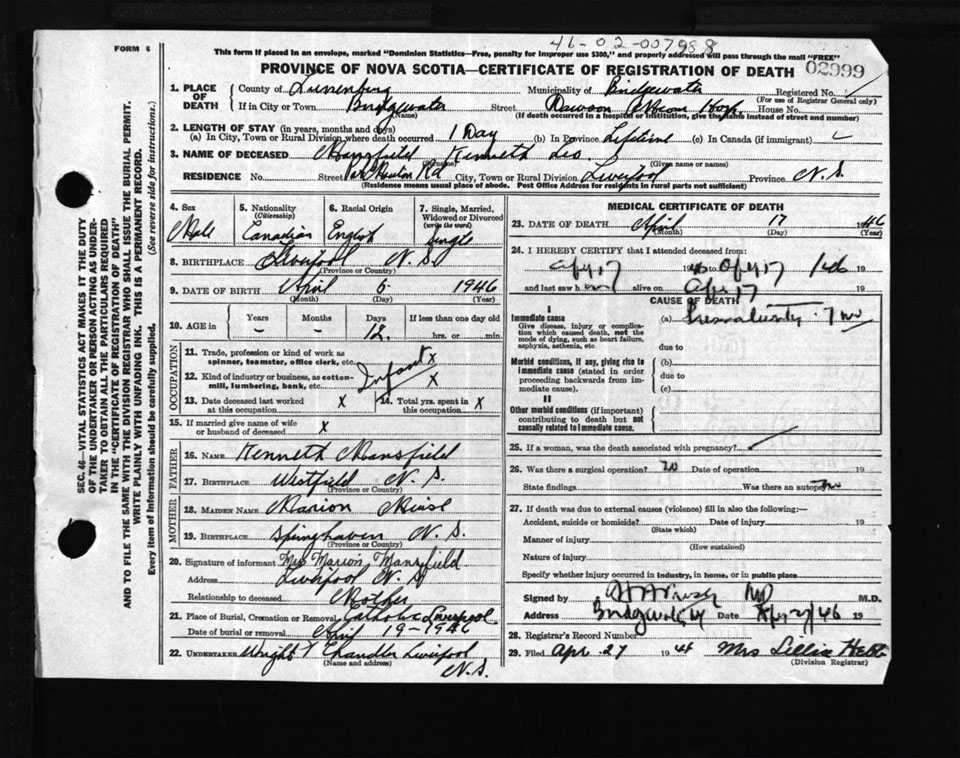 46-02-007988
FORM 6
This form if placed in an envelope, marked "Dominion Statistics—Free, penalty for improper use $300," and properly addressed will pass through the mail "FREE"
PROVINCE OF NOVA SCOTIA—CERTIFICATE OF REGISTRATION OF DEATH 02999
1. PLACE OF DEATH County of Lunenburg Municipality of Bridgewater Registered No.
(For use of Registrar General only)
If in City or Town Bridgewater Street Dawson Hosp House No.
(Name) (If death occurred in a hospital or institution, give the name instead of street and number)
2. LENGTH OF STAY (in years, months and days)
(a) In City, Town or Rural Division where death occurred 1 Day (b) In Province Lifetime (c) In Canada (if immigrant)
3. NAME OF DECEASED Mansfield Kenneth Leo
(Surname) (Given name or names)
RESIDENCE No. Street Rd City, Town or Rural Division Liverpool Province N.S.
(Residence means usual place of abode. Post Office Address for residents in rural parts not sufficient)
4. Sex Male
5. Nationality (Citizenship) Canadian
6. Racial Origin English
7. Single, Married, Widowed or Divorced (write the word) single
8. BIRTHPLACE Liverpool N.S.
(Province or Country)
9. DATE OF BIRTH April 5 1946
(Month) (Day) (Year)
10. AGE in Years Months Days If less than one day old
– – 12 hrs. or min.
OCCUPATION
11. Trade, profession or kind of work as spinner, teamster, office clerk, etc. Infant x
12. Kind of industry or business, as cotton-mill, lumbering, bank, etc. x
13. Date deceased last worked at this occupation x
14. Total yrs. spent in this occupation x
15. If married give name of wife or husband of deceased x
FATHER
16. NAME Kenneth Mansfield
17. BIRTHPLACE Westfield N.S.
(Province or Country)
MOTHER
18. MAIDEN NAME Marion
19. BIRTHPLACE Springhaven N.S.
(Province or Country)
20. Signature of informant Mrs Marion Mansfield
Address Liverpool N.S
Relationship to deceased Mother
21. Place of Burial, Cremation or Removal Catholic Liverpool
Date of burial or removal April 19-1946
22. UNDERTAKER Wright Chandler Liverpool
(Name and address) N.S.
MEDICAL CERTIFICATE OF DEATH
23. DATE OF DEATH April 17 1946
(Month) (Day) (Year)
24. I HEREBY CERTIFY that I attended deceased from:
Apr 17 19 46 to Apr 17 146 19
and last saw h alive on Apr 17 19
CAUSE OF DEATH
I
Immediate cause (a) Prematurity - 7 mo
Give disease, injury or complication which caused death, not the mode of dying, such as heart failure, asphyxia, asthenia, etc.
due to
Morbid conditions, if any, giving rise to immediate cause (stated in order proceeding backwards from immediate cause). (b)
due to
(c)
II
Other morbid conditions (if important) contributing to death but not causally related to immediate cause.
25. If a woman, was the death associated with pregnancy?
26. Was there a surgical operation? no Date of operation 19
State findings Was there an autopsy no
27. If death was due to external causes (violence) fill in also the following:—
Accident, suicide or homicide? Date of injury 19
(State which)
Manner of injury
(How sustained)
Nature of injury
Specify whether injury occurred in industry, in home, or in public place
Signed by MD M.D.
Address Bridgewater Date Apr 27/46 19
28. Registrar's Record Number
29. Filed Apr. 27 19 Mrs Lillia Hebb
(Division Registrar)
SEC. 46—VITAL STATISTICS ACT MAKES IT THE DUTY
OF THE UNDERTAKER OR PERSON ACTING AS UNDER-
TAKER TO OBTAIN ALL THE PARTICULARS REQUIRED
IN THE "CERTIFICATE OF REGISTRATION OF DEATH"
AND TO FILE THE SAME WITH THE DIVISION REGISTRAR WHO SHALL ISSUE THE BURIAL PERMIT.
WRITE PLAINLY WITH UNFADING INK. THIS IS A PERMANENT RECORD.
Every item of Information should be carefully supplied. (See reverse side for instructions.)